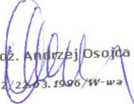 oż. Andrzej Osojca
2/22.03.1986/W-wa